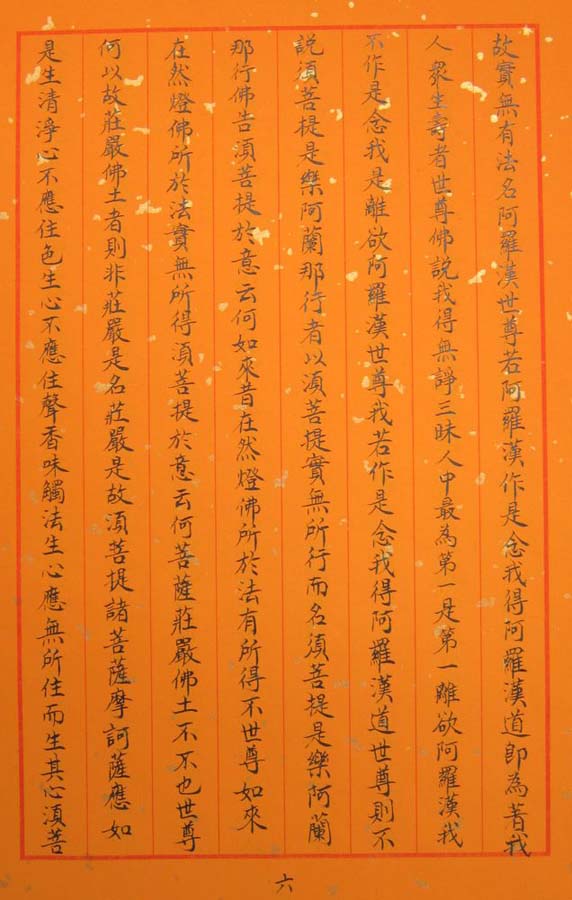 故實無有法名阿羅漢世尊若阿羅漢作是念我得阿羅漢道即為著我
人眾生壽者世尊佛說我得無諍三昧人中最為第一是第一離欲阿羅漢我
不作是念我是離欲阿羅漢世尊我若作是念我得阿羅漢道世尊則不
說須菩提是樂阿蘭那行者以須菩提實無所行而名須菩提是樂阿蘭
那行佛告須菩提於意云何如來昔在然燈佛所於法有所得不世尊如來
在然燈佛所於法實無所得須菩提於意云何菩薩莊嚴佛土不不也世尊
何以故莊嚴佛土者則非莊嚴是名莊嚴是故須菩提諸菩薩摩訶薩應如
是生清淨心不應住色生心不應住聲香味觸法生心應無所住而生其心須菩
六